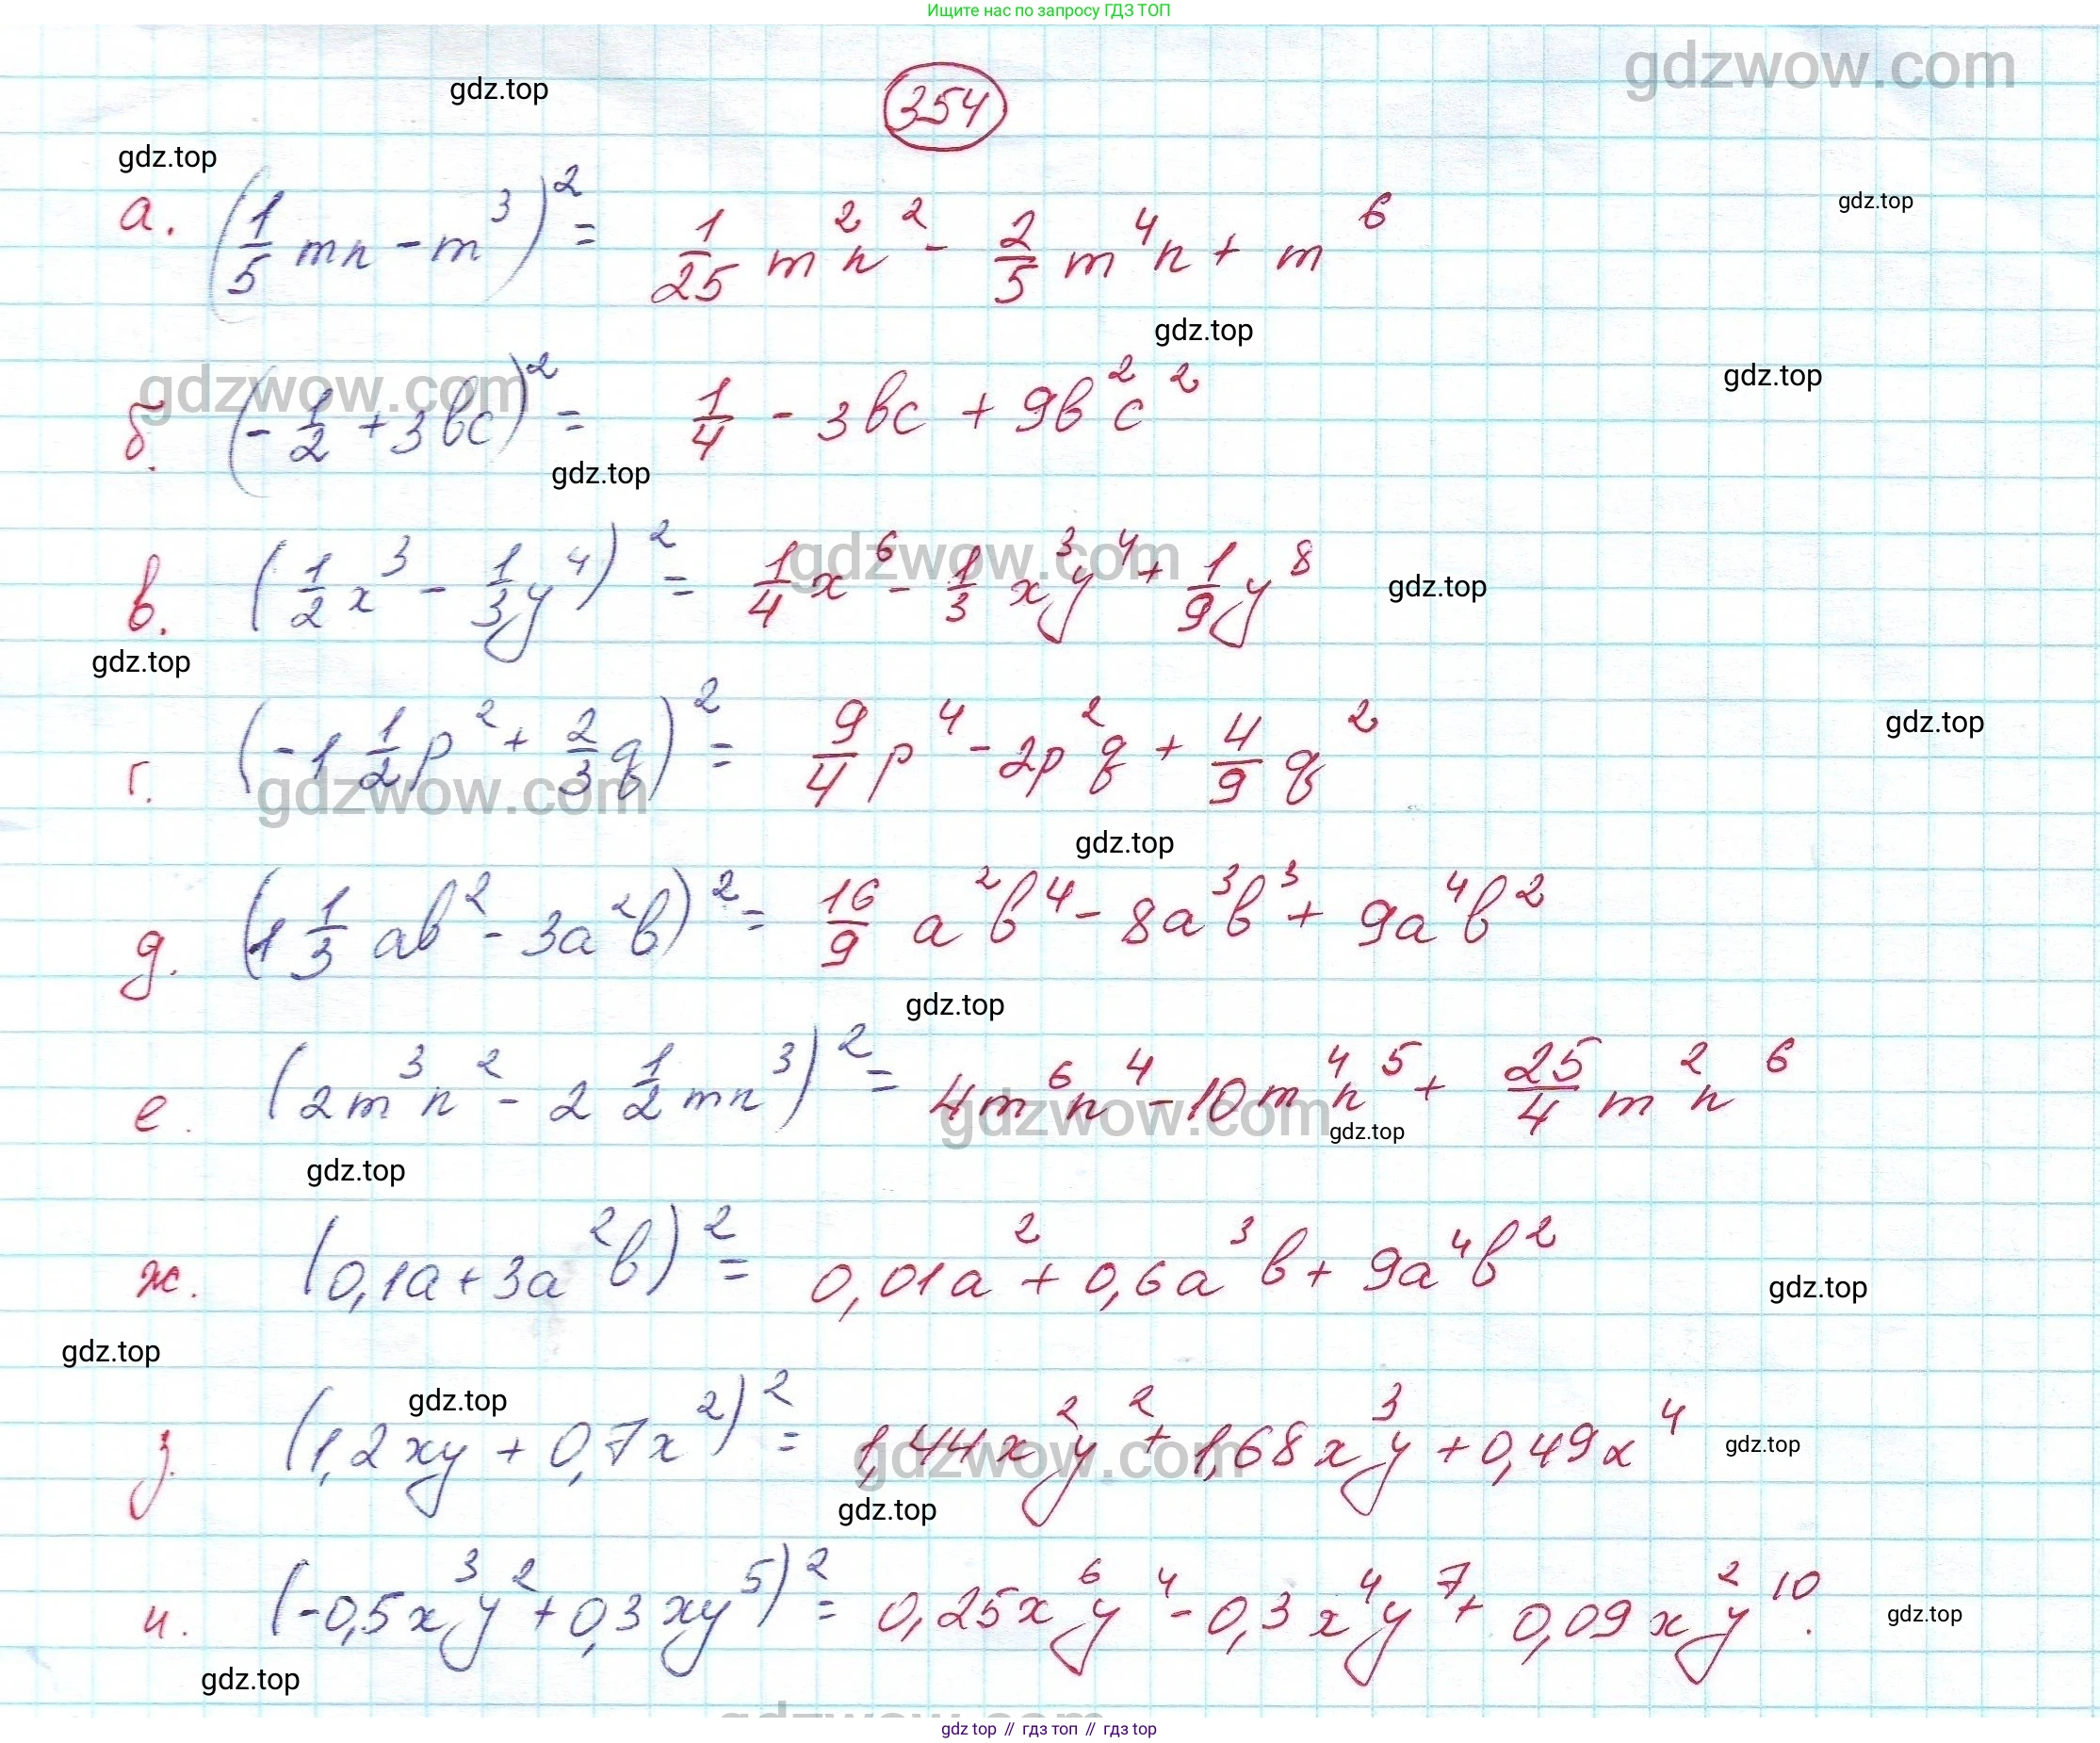 Ищите нас по запросу ГДЗ ТОП
gdzwow.com
gdz.top
354
gdz.top
gdz.top
а. (1/5 mn - m³)² = 1/25 m²n² - 2/5 m⁴n + m⁶
gdz.top
gdz.top
gdzwow.com
б. (-1/2 + 3bc)² = 1/4 - 3bc + 9b²c²
gdz.top
gdzwow.com
в. (1/2 x³ - 1/3 y⁴)² = 1/4 x⁶ - 1/3 x³y⁴ + 1/9 y⁸
gdz.top
gdz.top
gdz.top
г. (-1 1/2 p² + 2/3 q)² = 9/4 p⁴ - 2p²q + 4/9 q²
gdzwow.com
gdz.top
д. (1 1/3 ab² - 3a²b)² = 16/9 a²b⁴ - 8a³b³ + 9a⁴b²
gdz.top
е. (2m³n² - 2 1/2 mn³)² = 4m⁶n⁴ - 10m⁴n⁵ + 25/4 m²n⁶
gdzwow.com
gdz.top
gdz.top
ж. (0,1a + 3a²b)² = 0,01a² + 0,6a³b + 9a⁴b²
gdz.top
gdz.top
gdz.top
з. (1,2xy + 0,7x²)² = 1,44x²y² + 1,68x³y + 0,49x⁴
gdz.top
gdzwow.com
gdz.top
и. (-0,5x³y² + 0,3xy⁵)² = 0,25x⁶y⁴ - 0,3x⁴y⁷ + 0,09x²y¹⁰.
gdz.top
gdz.top
gdzwow.com
gdz top // гдз топ // гдз top